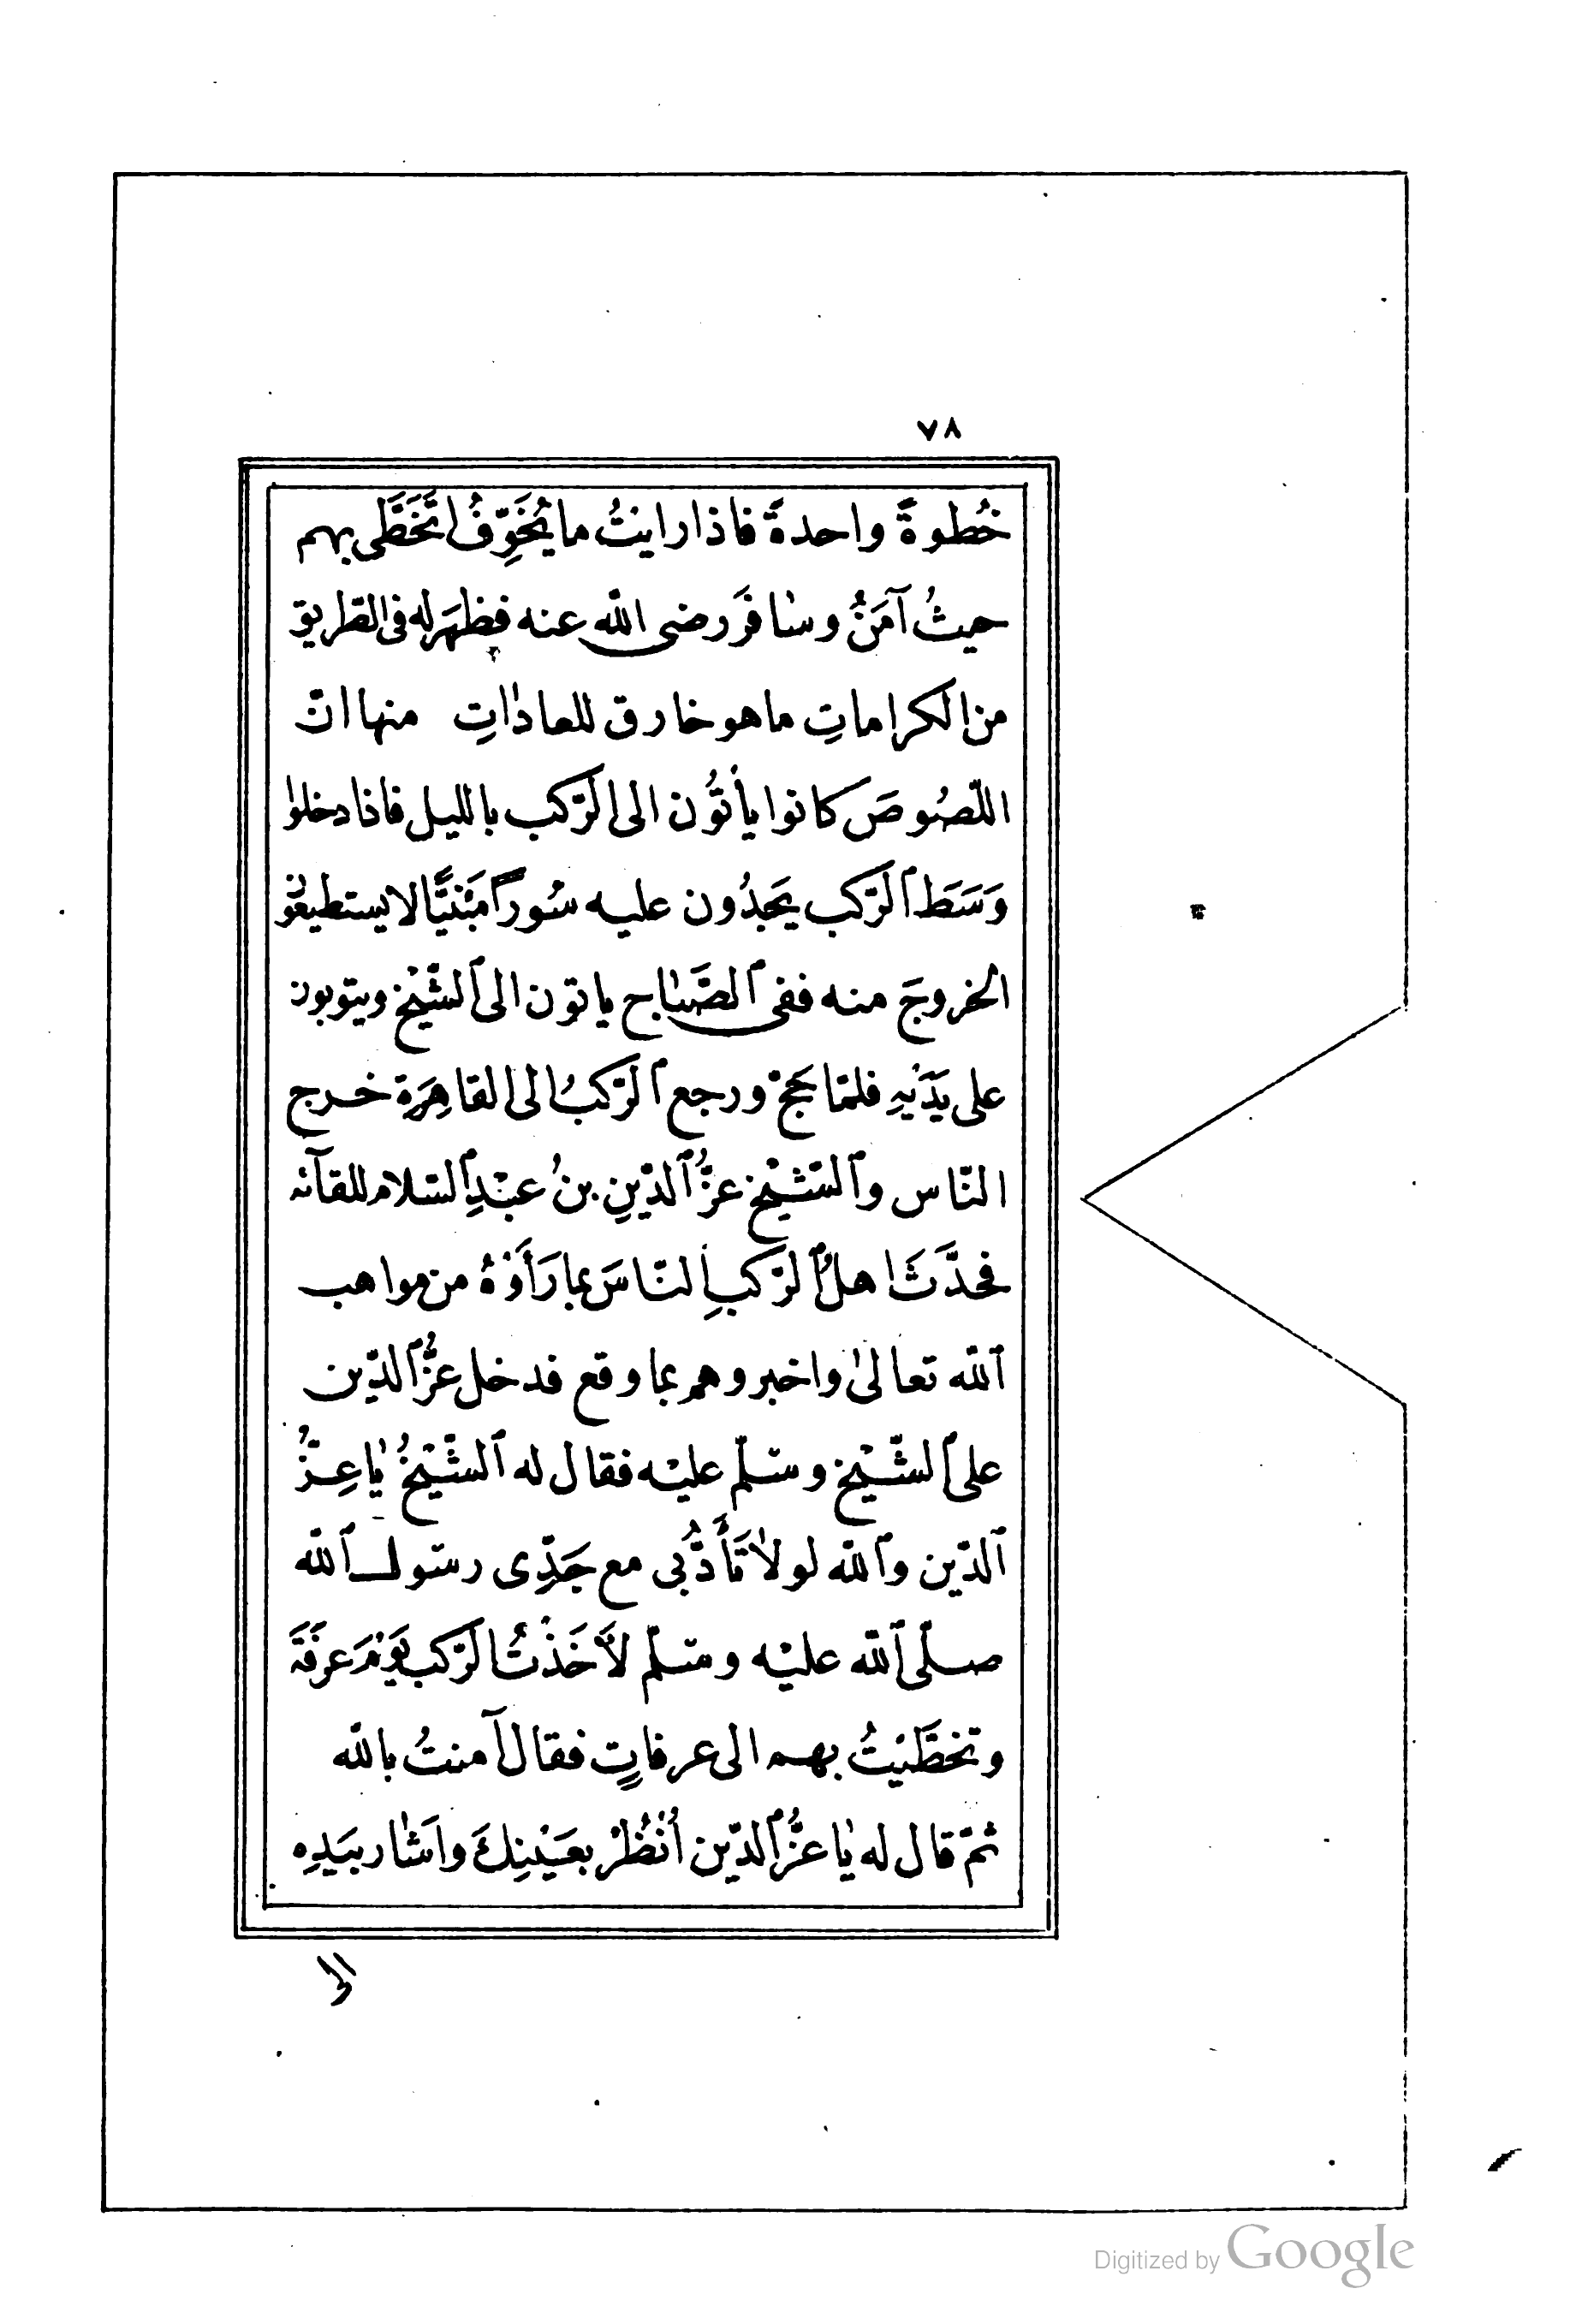 ٧٨
خُطوةً واحدةً فاذا راينتُ ما يُخَوِّفُ اتَّخَطَّى بهم
حيثُ آمَنُ وسافَرَ رضى الله عنه فظهَر له فى الطريق
من الكراماتِ ما هو خارق للعاداتِ منها انّ
اللّصُوصَ كانوا يأتُون الى الرّكب بالليل فاذا دخلوا
وَسَطَ الرّكب يَجِدُون عليه سُوراً مَبْنيًّا لا يستطيعون
الخروجَ منه ففى الصَّباح ياتون الى الشّيْخ ويتوبون
على يَدَيْهِ فلمّا حجّ ورجع الرّكبُ الى القاهِرَة خرج
النّاس والشّيْخ عزُّ الدّينِ بنُ عبْدِ السّلام للقآئه
فحدَّثَ اهلُ الرّكبِ النّاسَ بما رَأَوْهُ من مواهب
الله تعالىٰ واخبروهم بما وقع فدخل عزُّ الدّين
على الشّيْخ وسّلم عليْه فقال له الشّيْخُ يا عِزُّ
الدّين والله لولا تَأَدُّبى مع جَدِّى رسول الله
صلّى الله عليْه وسلّم لَأَخَذْتُ الرّكب يَوْمَ عرفَةَ
وتخطَّيْتُ بهم الى عرفاتٍ فقال آمنتُ بالله
ثمّ قال له يا عزُّ الدّين اُنْظُرْ بعَيْنِكَ واَشار بيَدِه
الى
Digitized by Google